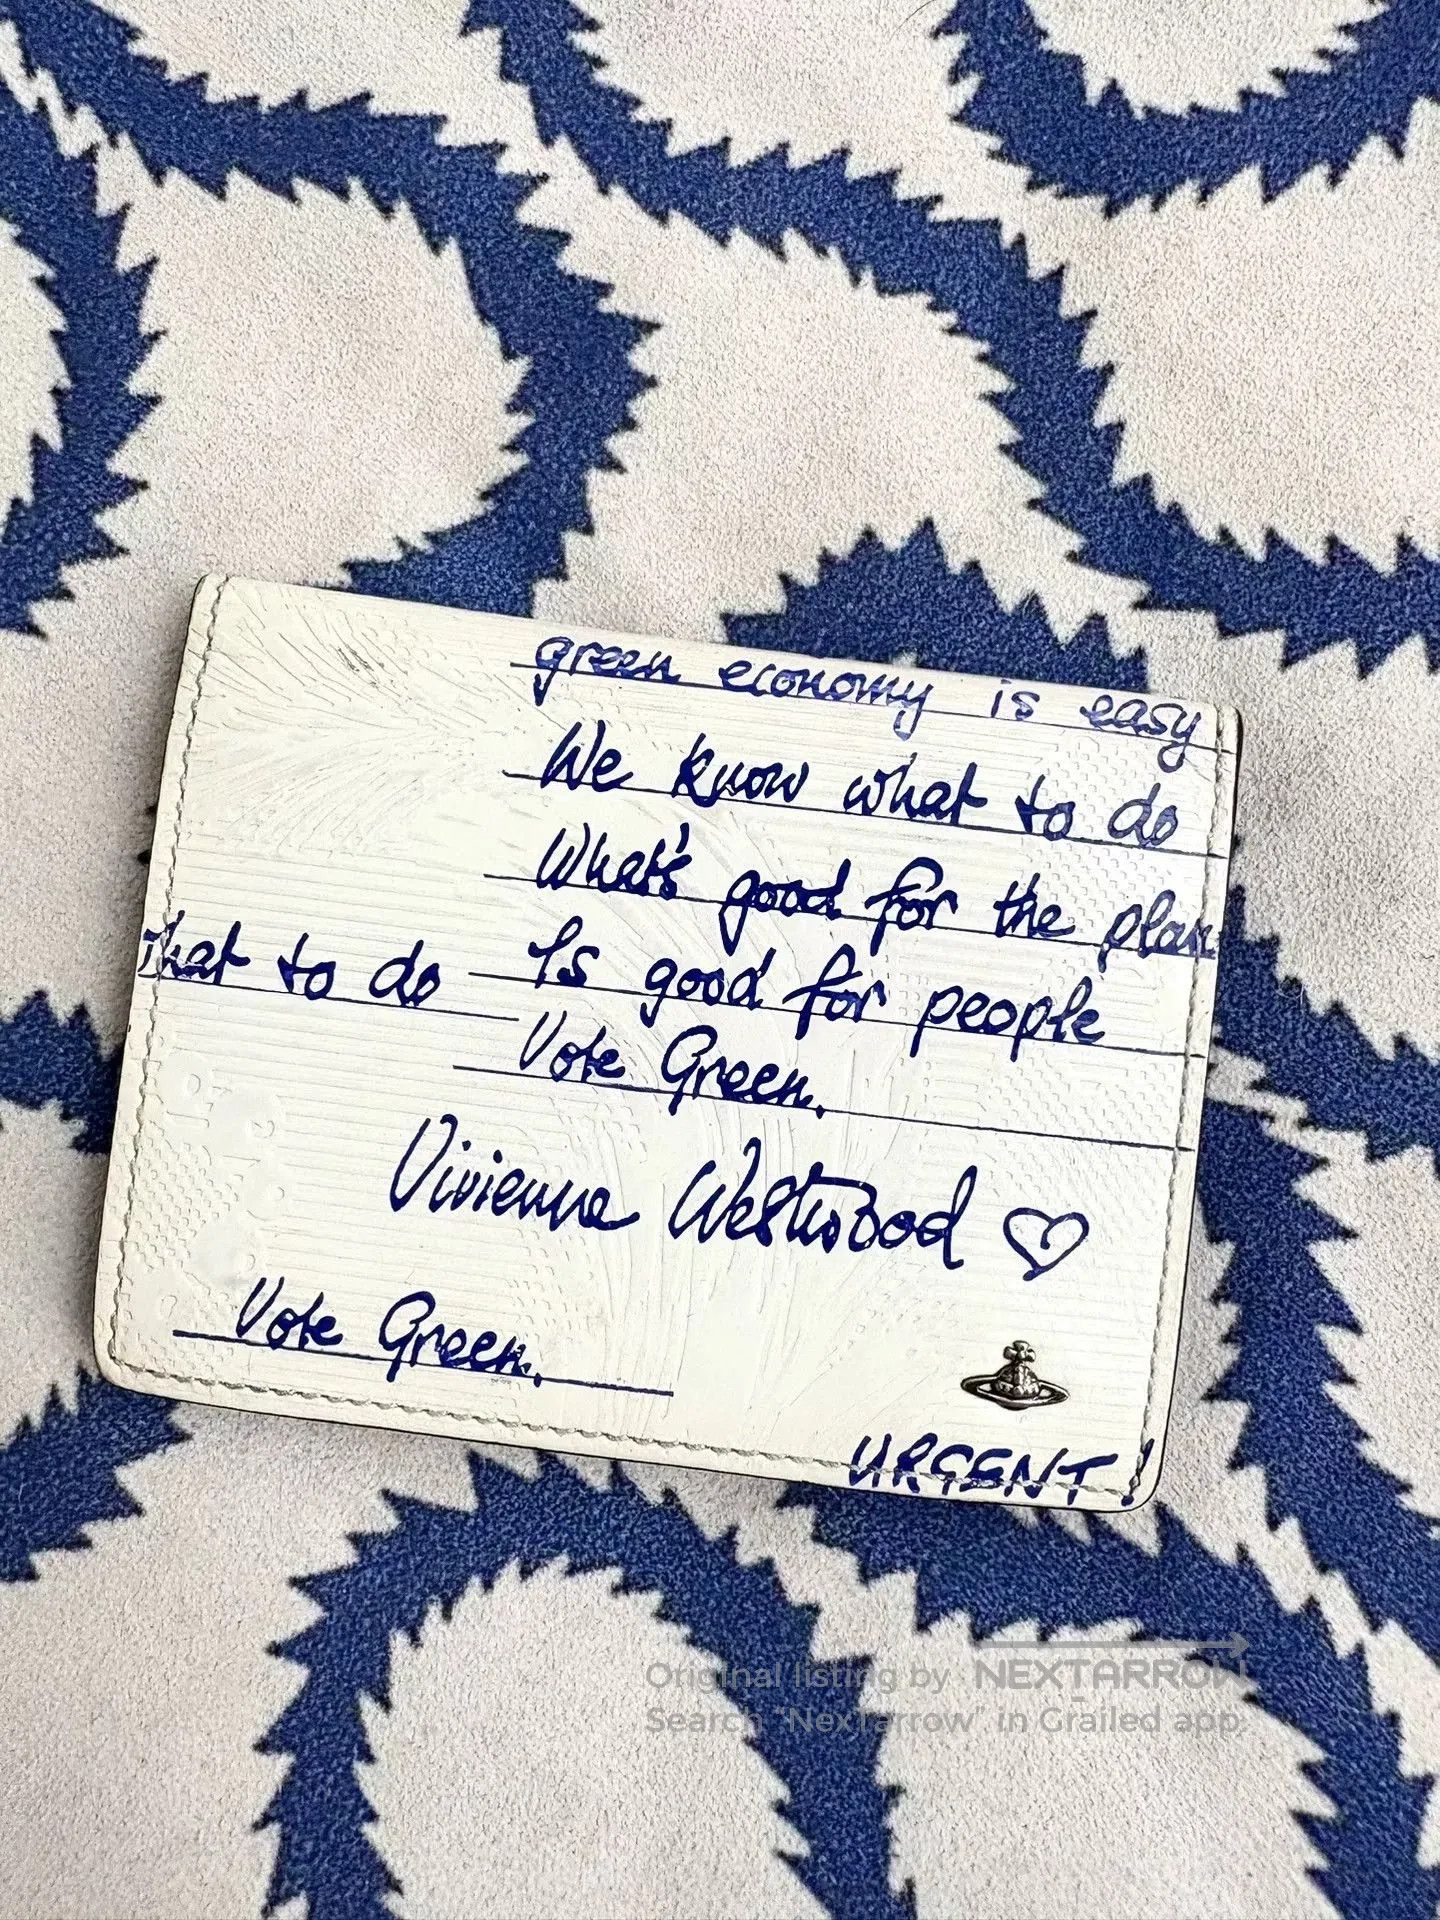 green economy is easy
We know what to do
What's good for the plan
hat to do
Is good for people
Vote Green.
Vivienne Westwood
Vote Green.
URGENT!
Original listing by NEXTARROW
Search "NexTarrow" in Grailed app